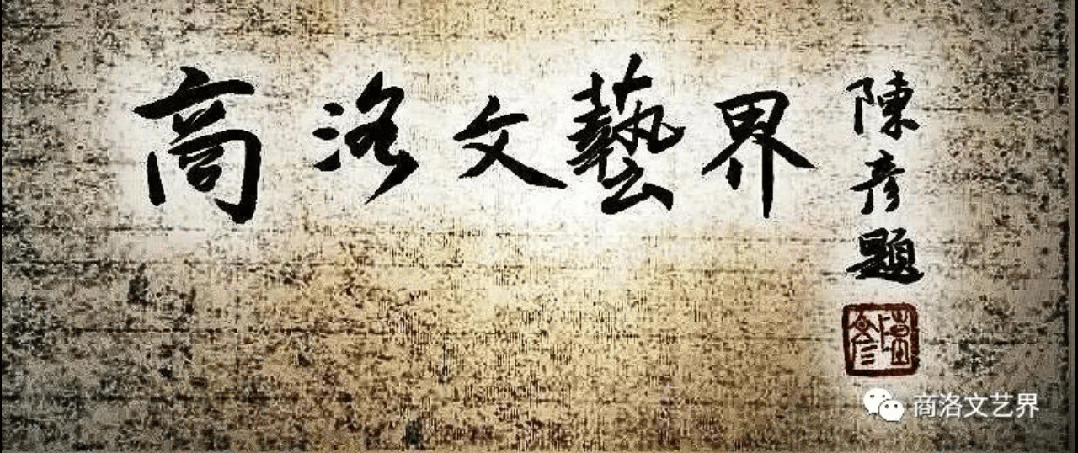 商洛文藝界
陳彦題
商洛文艺界